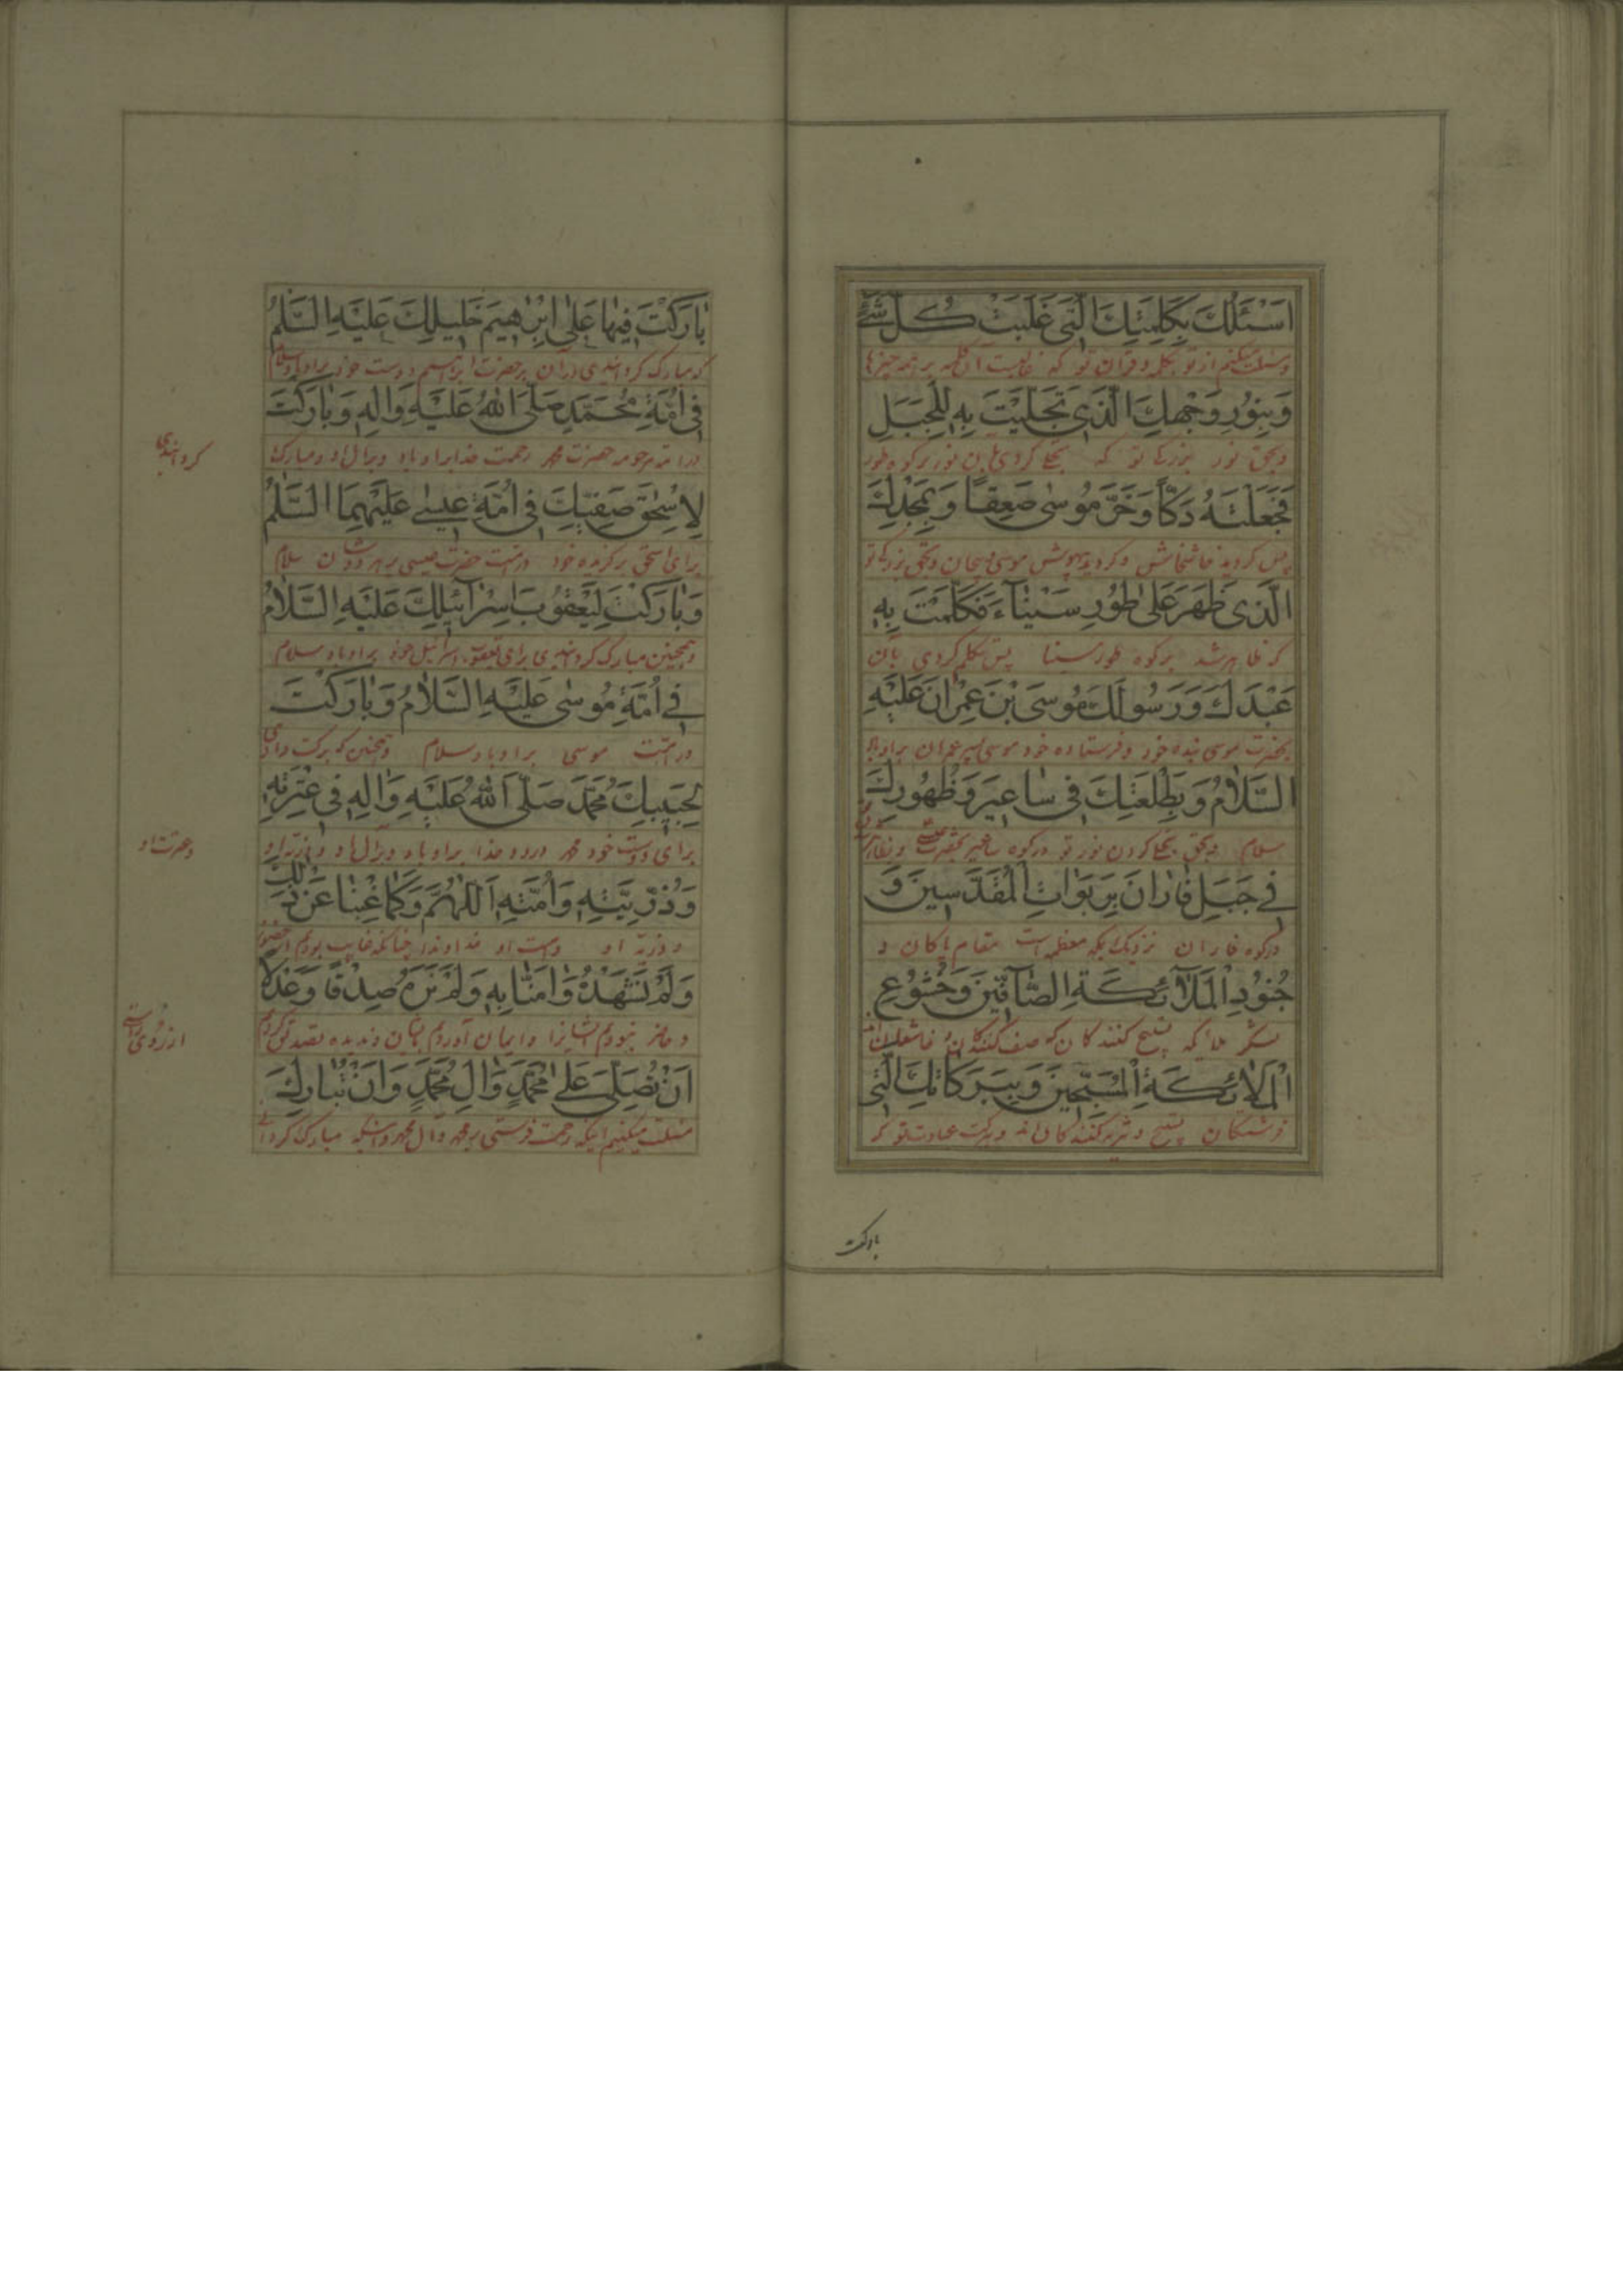 اَسْئَلُكَ بِكَلِمَتِكَ الَّتی غَلَبَتْ كُلَّ شَیْءٍ
وسئلت میکنم از تو بکلمه و قران تو که غالبست آن کلمه بر همه چیزها
وَبِنُورِ وَجْهِكَ الَّذی تَجَلَّیْتَ بِهِ لِلْجَبَلِ
و بحق نور بزرک تو که تجلی کردی بآن نور بر کوه طور
فَجَعَلْتَهُ دَكّاً وَخَرَّ مُوسٰی صَعِقاً وَبِمَجْدِكَ
پس کردید خاشخاش و کردید بیهوش موسی و بحق بزرکی تو
الَّذی ظَهَرَ عَلٰی طُورِ سَیْنٰآءَ فَكَلَّمْتَ بِهِ
که ظاهر شد بر کوه طور سینا پس تکلم کردی بآن
عَبْدَكَ وَرَسُولَكَ مُوسَی بْنَ عِمْرٰانَ عَلَیْهِ
بحضرت موسی بنده خود و فرستاده خود موسی پسر عمران بر او باد
السَّلاٰمُ وَبِطَلْعَتِكَ فی سٰاعیرَ وَظُهُورِكَ
سلام و بحق تجلی کردن نور تو در کوه ساعیر بحضرت عیسی و ظاهر شدن
فی جَبَلِ فٰارٰانَ بِرَبَوٰاتِ الْمُقَدَّسینَ وَ
در کوه فاران نزدیک بمکه معظمه است مقام پاکان و
جُنُودِ الْمَلاٰئِكَةِ الصّٰآفّینَ وَخُشُوعِ
لشکر ملائکه تسبیح کنندکان که صف کنندکان و خاشعان
الْمَلاٰئِكَةِ الْمُسَبِّحینَ وَبِبَرَكٰاتِكَ الَّتی
فرشتکان تسبیح و تنزیه کنندکان و برکت تو که
بارکت
بٰارَكْتَ فیهٰا عَلٰی اِبْرٰهیمَ خَلیلِكَ عَلَیْهِ السَّلٰمُ
که مبارک کردانیدی در آن بر حضرت ابراهیم دوست خود بر او باد سلام
فی اُمَّةِ مُحَمَّدٍ صَلَّی اللّٰهُ عَلَیْهِ وَاٰلِهِ وَبٰارَكْتَ
در امت مرحومه حضرت محمد رحمت خدا بر او باد و بر آل او و مبارک
کردانیدی
لِاِسْحٰقَ صَفِیِّكَ فی اُمَّةِ عیسٰی عَلَیْهِمَا السَّلٰمُ
برای اسحق برکزیده خود در امت حضرت عیسی بر هر دوشان سلام
وَبٰارَكْتَ لِیَعْقُوبَ اِسْرٰآئیلِكَ عَلَیْهِ السَّلاٰمُ
و همچنین مبارک کردانیدی برای یعقوب اسرائیل خود بر او باد سلام
فی اُمَّةِ مُوسٰی عَلَیْهِ السَّلاٰمُ وَبٰارَكْتَ
در امت موسی بر او باد سلام و همچنین که برکت دادی
لِحَبیبِكَ مُحَمَّدٍ صَلَّی اللّٰهُ عَلَیْهِ وَاٰلِهِ فی عِتْرَتِهِ
برای دوست خود محمد درود خدا بر او باد و بر آل او و بر
و عترت او
وَذُرِّیَّتِهِ وَاُمَّتِهِ اَللّٰهُمَّ وَكَمٰا غِبْنٰا عَنْ ذٰلِكَ
و ذریه او و امت او خداوندا چنانکه غایب بودیم از حضور
وَلَمْ نَشْهَدْهُ وَاٰمَنّٰا بِهِ وَلَمْ نَرَهُ صِدْقاً وَعَدْلاً
و حاضر نبودیم ایشانرا و ایمان آوردیم بایشان و ندیده تصدیق کردیم
از روی راستی
اَنْ تُصَلِّیَ عَلٰی مُحَمَّدٍ وَاٰلِ مُحَمَّدٍ وَاَنْ تُبٰارِكَ
مسئلت میکنیم اینکه رحمت فرستی بر محمد و آل محمد و اینکه مبارک کردانی